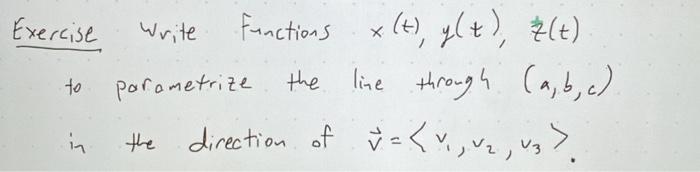 Exercise Write functions x(t), y(t), z(t)
to parametrize the line through (a,b,c)
in the direction of v⃗ = <v₁, v₂, v₃>.